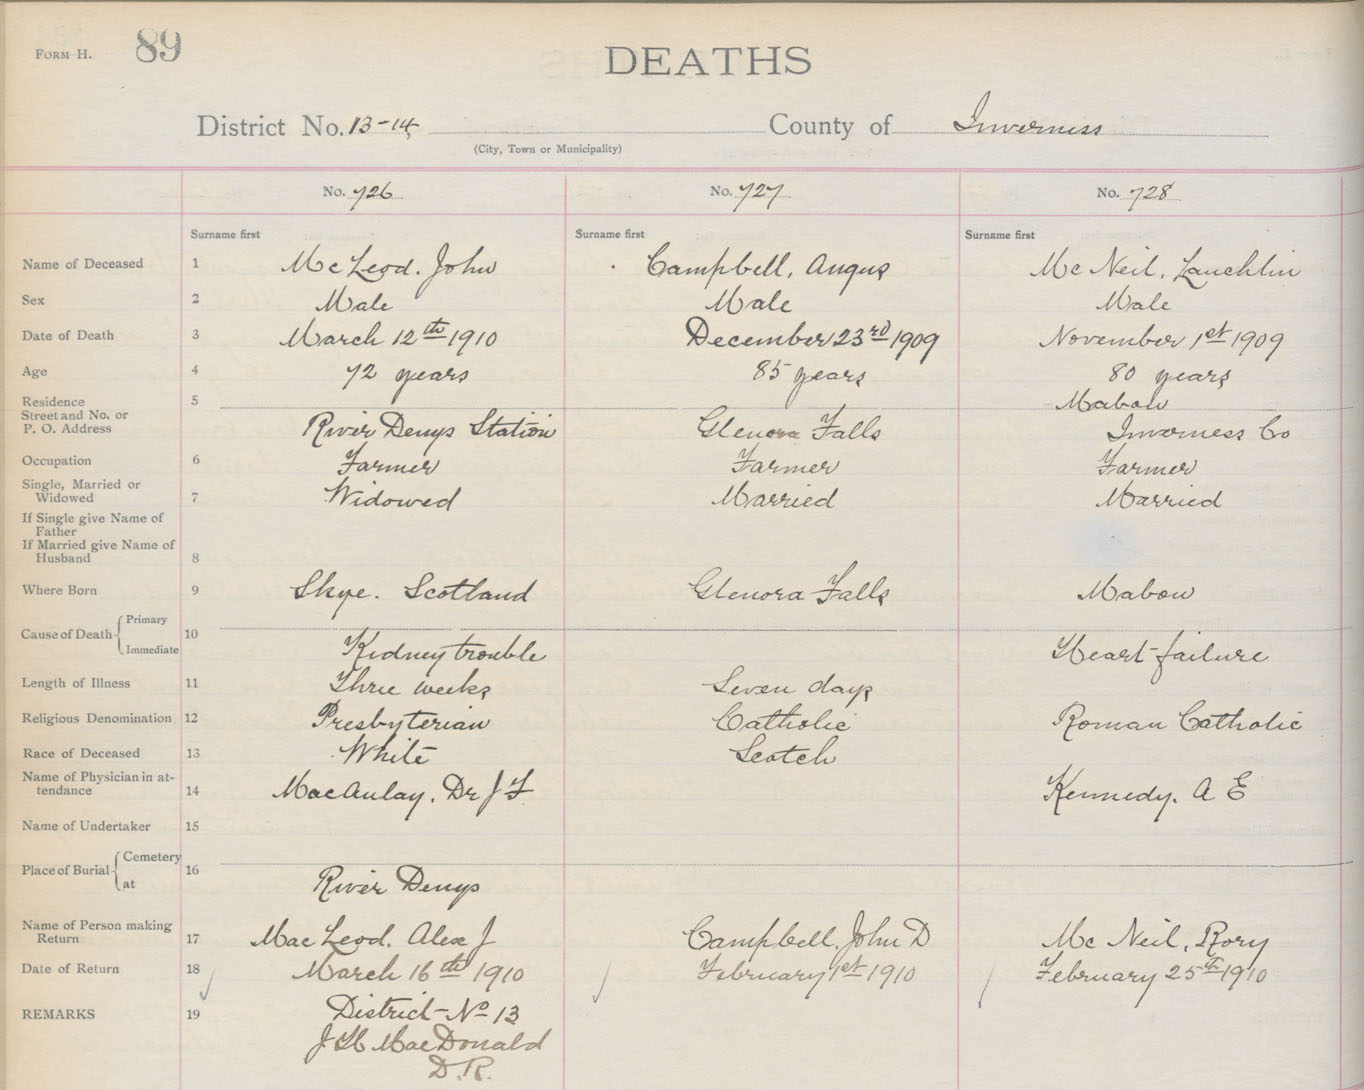 FORM H. 89
DEATHS
District No. 13-14 County of Inverness
(City, Town or Municipality)
No. 726 No. 727 No. 728
Surname first Surname first Surname first
Name of Deceased 1 McLeod. John Campbell, Angus McNeil, Lauchlin
Sex 2 Male Male Male
Date of Death 3 March 12th 1910 December 23rd 1909 November 1st 1909
Age 4 72 years 85 years 80 years
Residence 5 Mabou
Street and No. or
P. O. Address River Denys Station Glenora Falls Inverness Co
Occupation 6 Farmer Farmer Farmer
Single, Married or
Widowed 7 Widowed Married Married
If Single give Name of
Father
If Married give Name of
Husband 8
Where Born 9 Skye. Scotland Glenora Falls Mabou
Primary
Cause of Death 10
Immediate Kidney trouble Heart failure
Length of Illness 11 Three weeks Seven days
Religious Denomination 12 Presbyterian Catholic Roman Catholic
Race of Deceased 13 White Scotch
Name of Physician in at-
tendance 14 MacAulay. Dr J F Kennedy. A E
Name of Undertaker 15
Cemetery
Place of Burial 16
at River Denys
Name of Person making
Return 17 MacLeod. Alex J Campbell. John D McNeil, Rory
Date of Return 18 March 16th 1910 February 1st 1910 February 25th 1910
REMARKS 19 District No 13
MacDonald
D.R.